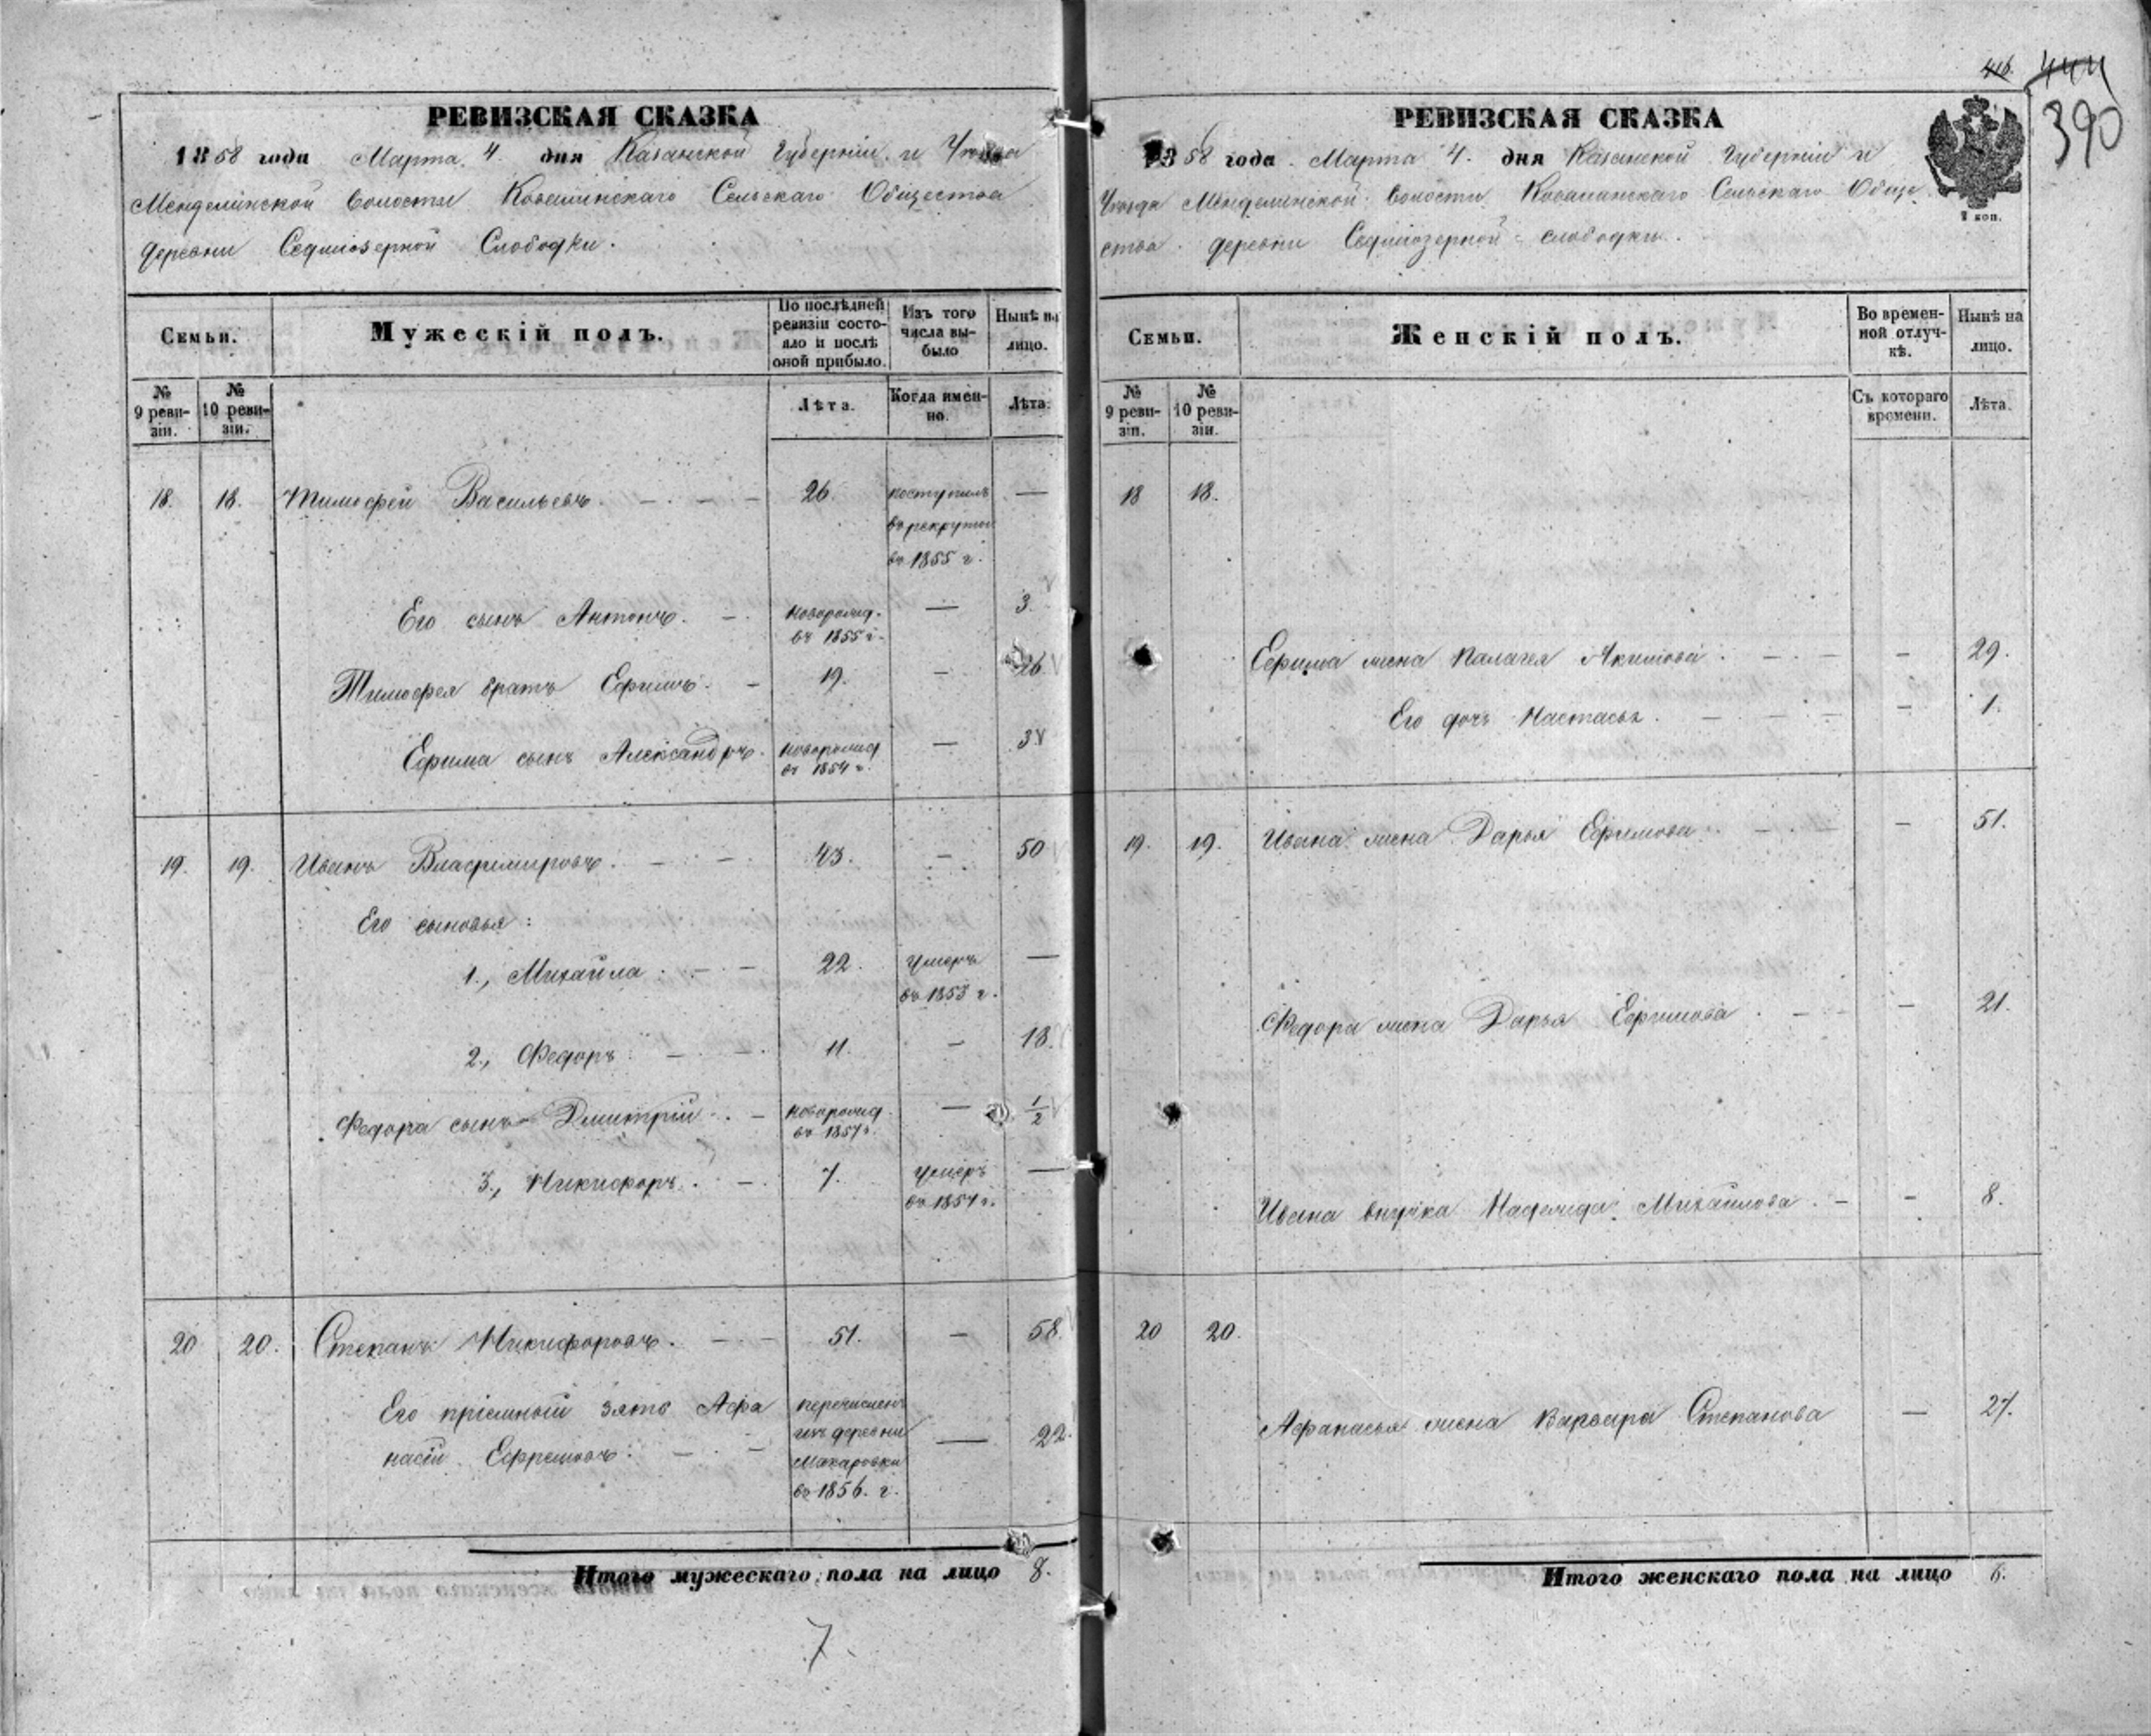 РЕВИЗСКАЯ СКАЗКА
1858 года Марта 4. дня Казанской Губернiи и Уѣзда
Менделинской Волости Ковалинскаго Сельскаго Общества
деревни Седмiозерной Слободки.
Семьи.
Мужескiй полъ.
По послѣдней ревизiи состояло и послѣ оной прибыло.
Изъ того числа выбыло
Нынѣ на лицо.
№ 9 ревизiи.
№ 10 ревизiи.
Лѣта.
Когда именно.
Лѣта.
18. 18. Тимофей Васильевъ. — — — 26. поступилъ —
въ рекруты
въ 1855 г.
Его сынъ Антонъ. — новорожд. — 3.
въ 1855 г.
Тимофея братъ Ефимъ. — 19. — 26
Ефима сынъ Александръ. новорожд — 3
въ 1854 г.
19. 19. Иванъ Владимировъ. — — 43. — 50
Его сыновья:
1., Михайла. — — 22. умеръ —
въ 1853 г.
2., Федоръ. — — 11. — 18.
Федора сынъ Дмитрiй. — новорожд. — 1/2
въ 1857 г.
3., Никифоръ. — 7. умеръ —
въ 1857 г.
20 20. Степанъ Никифоровъ. — — 51. — 58.
Его прiемный зять Афа перечисленъ
изъ деревни — 22.
насiй Ефремовъ. — —
Макаровки
въ 1856. г.
Итого мужескаго пола на лицо 8.
7.
416. 444
390
РЕВИЗСКАЯ СКАЗКА
1858 года Марта 4. дня Казанской Губернiи и
Уѣзда Менделинской Волости Ковалинскаго Сельскаго Обще
ства деревни Седмiозерной слободки.
1 коп.
Семьи.
Женскiй полъ.
Во временной отлучкѣ.
Нынѣ на лицо.
№ 9 ревизiи.
№ 10 ревизiи.
Съ котораго времени.
Лѣта.
18 18.
Ефима жена Палагея Акимова. — — — 29.
Его дочь Настасья. — — — 1.
19. 19. Ивана жена Дарья Ефимова. — — — 51.
Федора жена Дарья Ефимова. — — 21.
Ивана внучка Надежда Михайлова. — — 8.
20 20.
Афанасья жена Варвара Степанова — 27.
Итого женскаго пола на лицо 6.